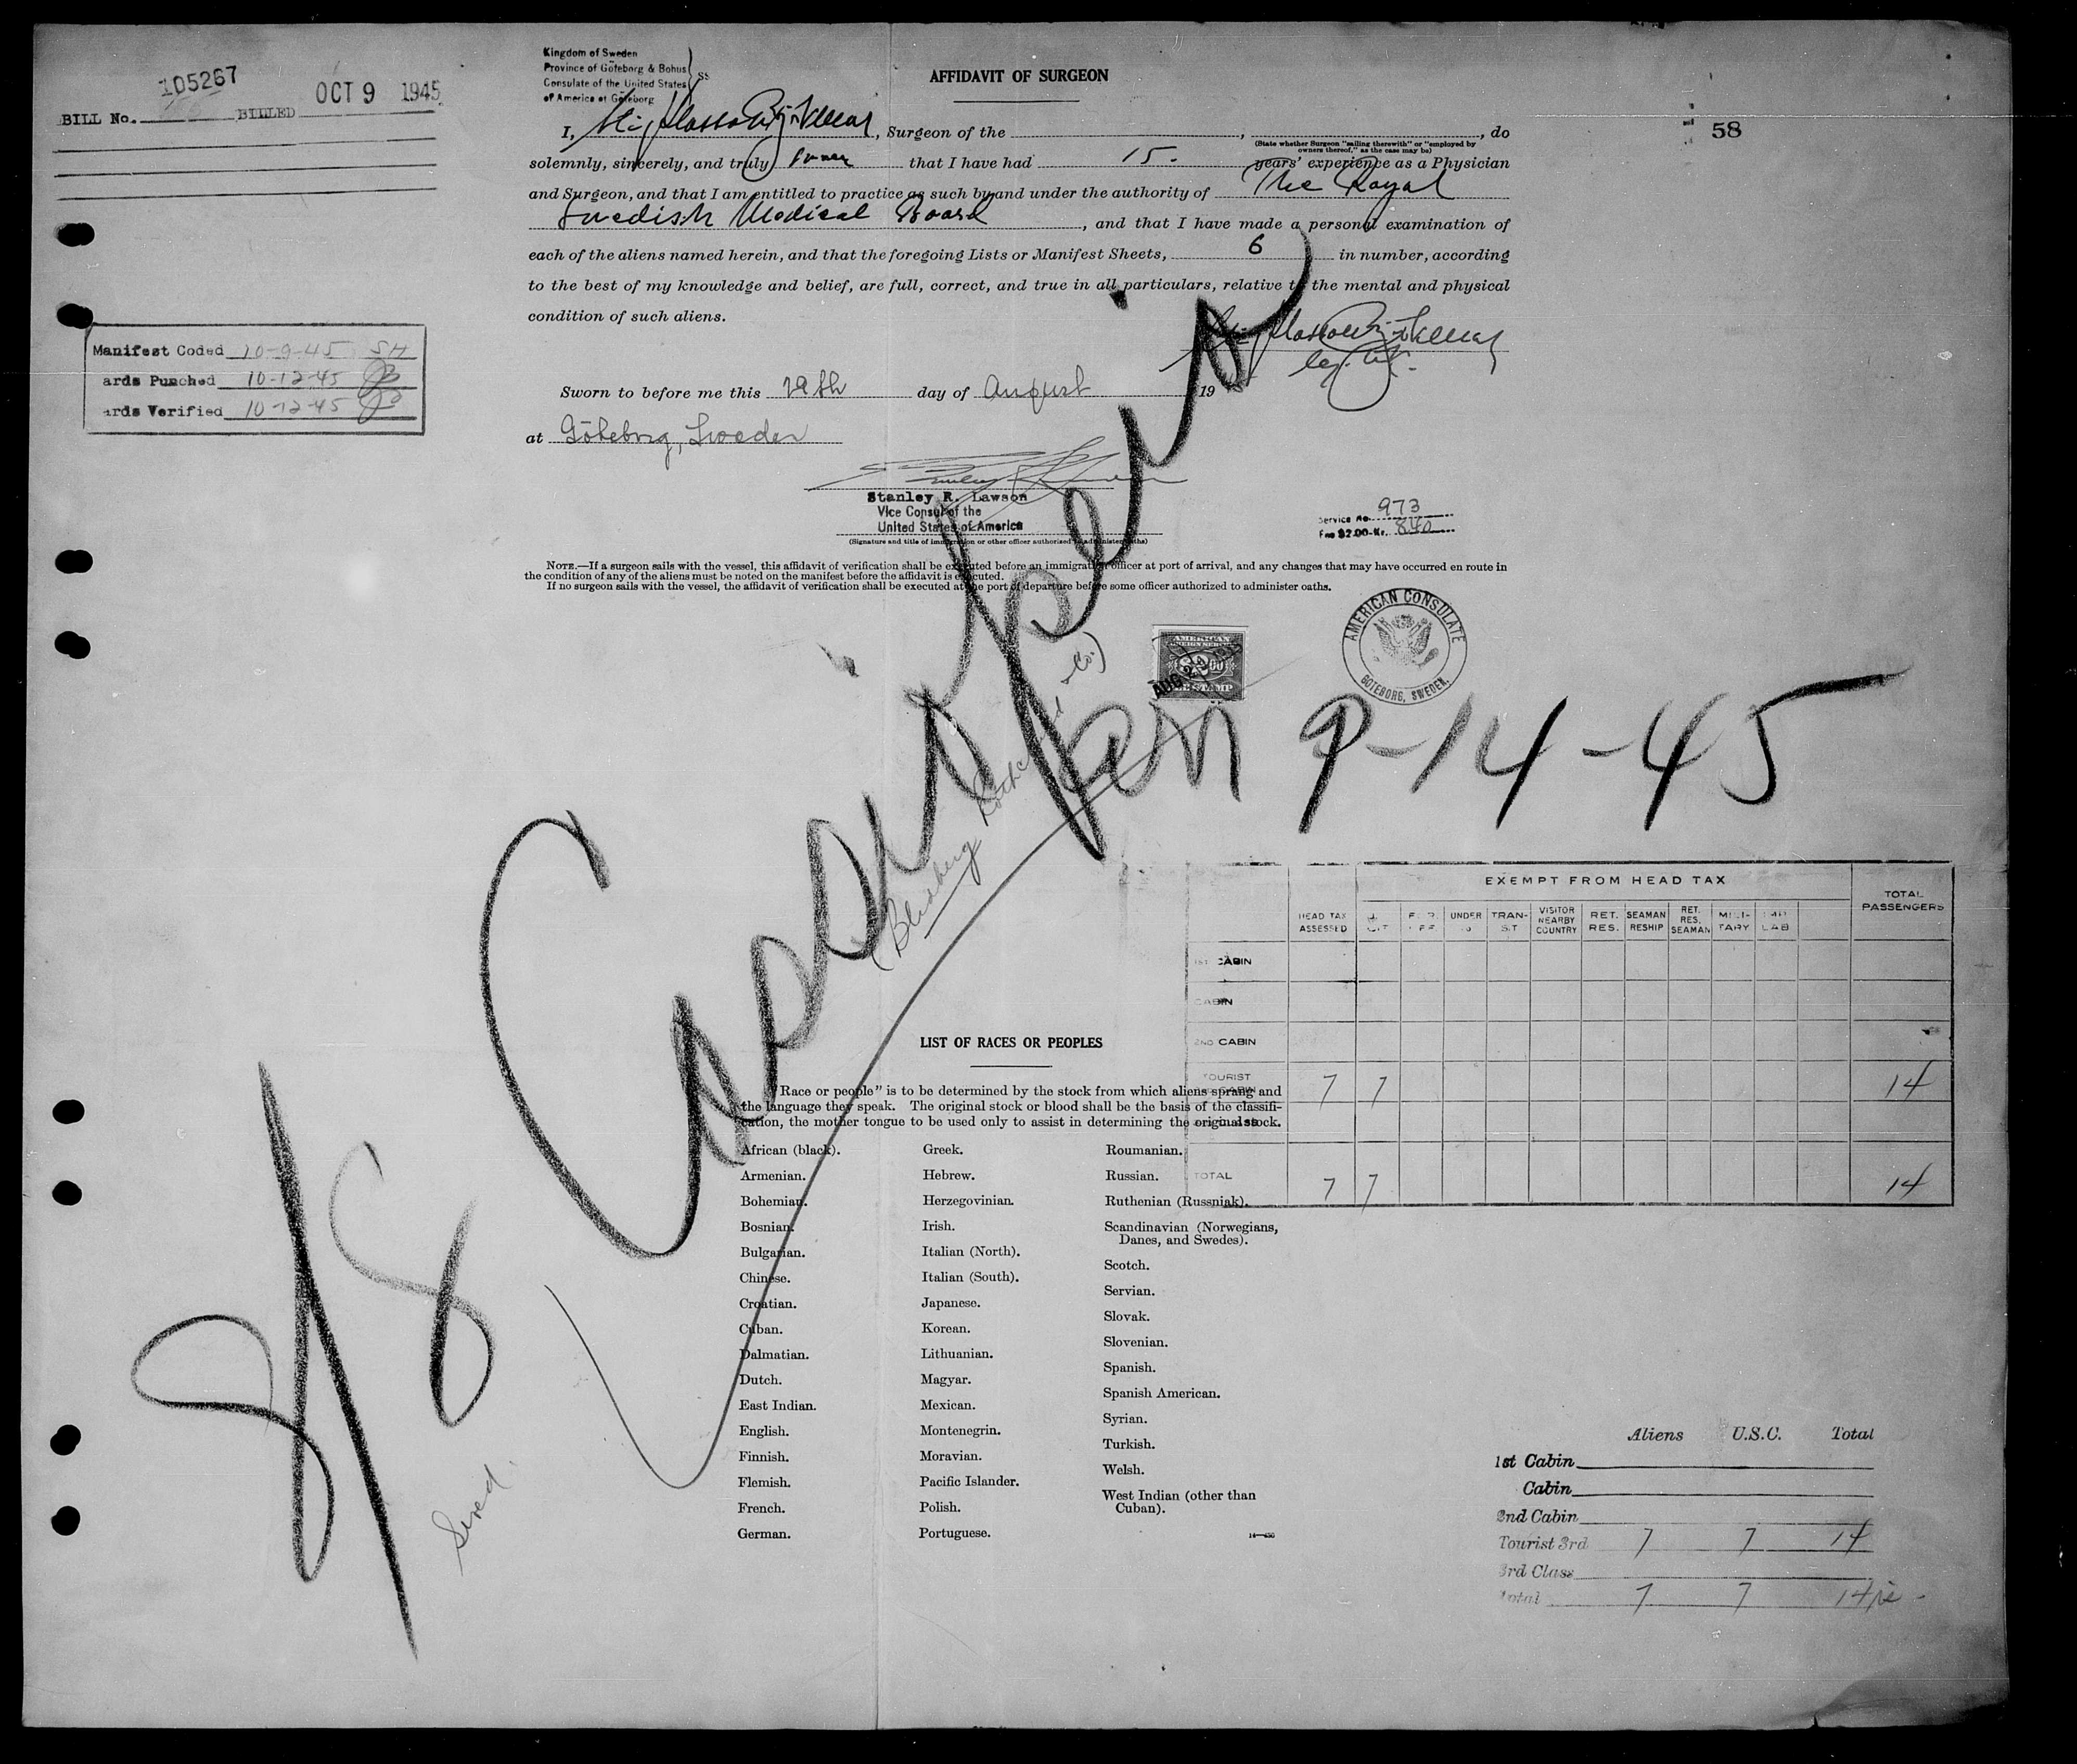 105267
BILL No. BILLED OCT 9 1945
Kingdom of Sweden
Province of Göteborg & Bohus
Consulate of the United States
of America at Göteborg
SS
AFFIDAVIT OF SURGEON
58
I, , Surgeon of the , , do
(State whether Surgeon "sailing therewith" or "employed by
owners thereof," as the case may be)
solemnly, sincerely, and truly swear that I have had 15. years' experience as a Physician
and Surgeon, and that I am entitled to practice as such by and under the authority of The Royal
Swedish Medical Board, and that I have made a personal examination of
each of the aliens named herein, and that the foregoing Lists or Manifest Sheets, 6 in number, according
to the best of my knowledge and belief, are full, correct, and true in all particulars, relative to the mental and physical
condition of such aliens.
Manifest Coded 10-9-45 SH
ards Punched 10-12-45
ards Verified 10-12-45
Sworn to before me this day of August 19
at Göteborg, Sweden
Stanley R. Lawson
Vice Consul of the
United States of America
(Signature and title of immigration or other officer authorized to administer oaths)
Service No. 973
Fee $2.00-Kr. 840
NOTE.—If a surgeon sails with the vessel, this affidavit of verification shall be executed before an immigration officer at port of arrival, and any changes that may have occurred en route in
the condition of any of the aliens must be noted on the manifest before the affidavit is executed.
If no surgeon sails with the vessel, the affidavit of verification shall be executed at the port of departure before some officer authorized to administer oaths.
AMERICAN CONSULATE
GOTEBORG, SWEDEN.
AMERICAN
FOREIGN SERVICE
$2.00
FEE STAMP
AUG 29
S/S Cassiopeia
9-14-45
(Blidberg Rothchild & Co.)
Swed.
EXEMPT FROM HEAD TAX
HEAD TAX ASSESSED
UNDER 16
TRANSIT
VISITOR NEARBY COUNTRY
RET. RES.
SEAMAN RESHIP
RET. RES. SEAMAN
MILITARY
TOTAL PASSENGERS
1ST CABIN
CABIN
2ND CABIN
TOURIST 7 7 14
TOTAL 7 7 14
LIST OF RACES OR PEOPLES
"Race or people" is to be determined by the stock from which aliens sprang and
the language they speak. The original stock or blood shall be the basis of the classifi-
cation, the mother tongue to be used only to assist in determining the original stock.
African (black).
Armenian.
Bohemian.
Bosnian.
Bulgarian.
Chinese.
Croatian.
Cuban.
Dalmatian.
Dutch.
East Indian.
English.
Finnish.
Flemish.
French.
German.
Greek.
Hebrew.
Herzegovinian.
Irish.
Italian (North).
Italian (South).
Japanese.
Korean.
Lithuanian.
Magyar.
Mexican.
Montenegrin.
Moravian.
Pacific Islander.
Polish.
Portuguese.
Roumanian.
Russian.
Ruthenian (Russniak).
Scandinavian (Norwegians,
Danes, and Swedes).
Scotch.
Servian.
Slovak.
Slovenian.
Spanish.
Spanish American.
Syrian.
Turkish.
Welsh.
West Indian (other than
Cuban).
Aliens U.S.C. Total
1st Cabin
Cabin
2nd Cabin
Tourist 3rd 7 7 14
3rd Class
Total 7 7 14